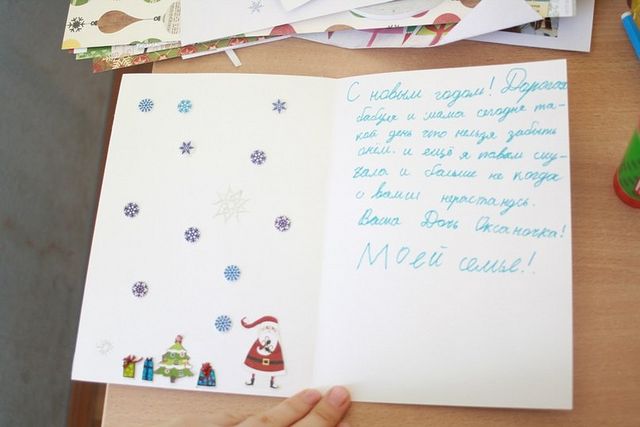 С новым годом! Дорогая
бабуля и мама сегодня та-
кой день что нельзя забыть
о нём. и ещё я по вам ску-
чала и больше не когда
с вами нерастанусь.
Ваша Дочь Оксаночка!
Моей семье!!